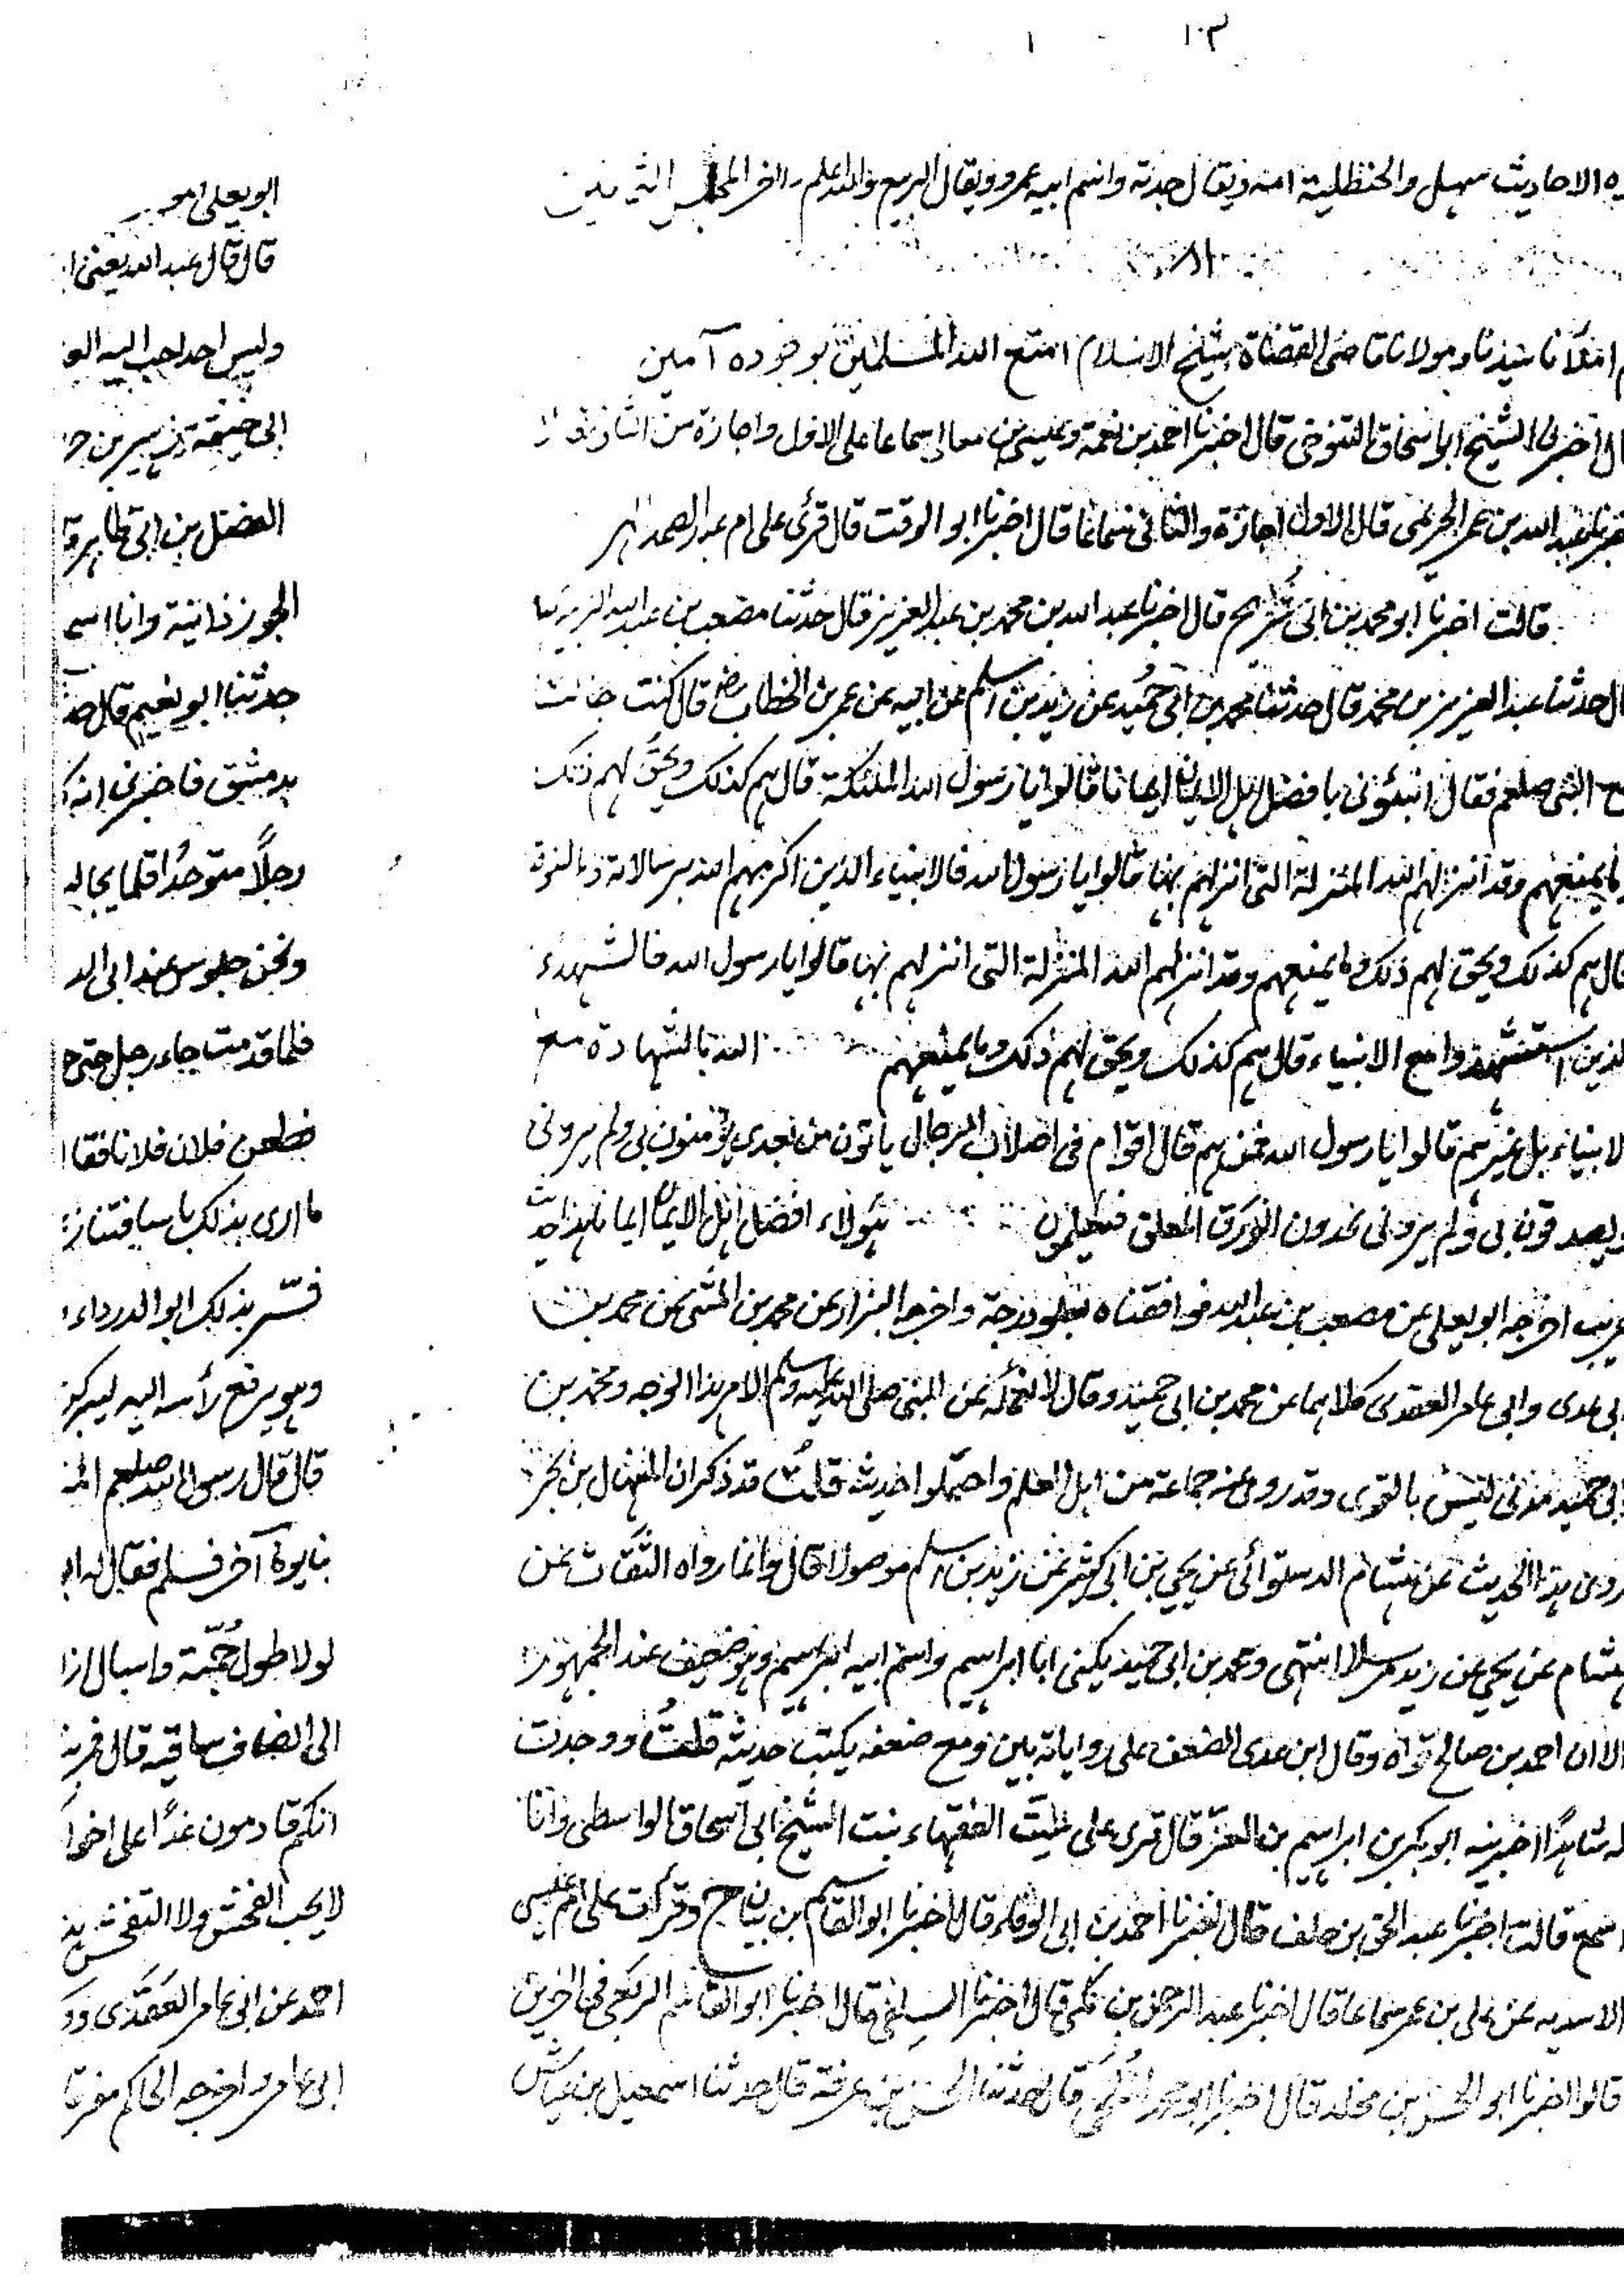 ١٠٣
ه الاحاديث سهيل والحنظلية امه ويقال جدته واسم ابيه عمرو ويقال الربيع والله اعلم آخر المجلس
املانا سيدنا ومولانا قاضى القضاة شيخ الاسلام امتع الله المسلمين بوجوده آمين
ال اخبرنى الشيخ ابو اسحاق التنوخى قال اخبرنا احمد بن نعمة وعيسى بن معالى سماعا على الاول واجازة من الثانى
عبد الله بن عمر الحريمى قال الاول اجازة والثانى سماعا قال اخبرنا ابو الوقت قال قرئ على ام عبد الصمد
قالت اخبرنا ابو محمد بن ابى شريح قال اخبرنا عبد الله بن محمد بن عبد العزيز قال حدثنا مصعب بن عبد الله الزبيرى
ال حدثنا عبد العزيز بن محمد قال حدثنا محمد بن ابى حميد عن زيد بن اسلم عن ابيه عن عمر بن الخطاب رض قال كنت جالسا
مع النبى صلعم فقال انبئونى بافضل اهل الايمان ايمانا قالوا يا رسول الله الملئكة قال هم كذلك ويحق لهم ذلك
وما يمنعهم وقد انزلهم الله المنزلة التى انزلهم بها قالوا يا رسول الله فالانبياء الذين اكرمهم الله برسالاته والنبوة
قال هم كذلك ويحق لهم ذلك وما يمنعهم وقد انزلهم الله المنزلة التى انزلهم بها قالوا يا رسول الله فالشهداء
الذين استشهدوا مع الانبياء قال هم كذلك ويحق لهم ذلك وما يمنعهم الله بالشهادة مع
الانبياء بل غيرهم قالوا يا رسول الله فمن هم قال اقوام فى اصلاب الرجال ياتون من بعدى يؤمنون بى ولم يرونى
ويصدقون بى ولم يرونى يجدون الورق المعلق فيعملون هؤلاء افضل اهل الايمان ايمانا هذا حديث
غريب اخرجه ابو يعلى عن مصعب بن عبد الله فوافقناه بعلو درجة واخرجه البزار عن محمد بن المثنى عن محمد بن
ابى عدى وابى عامر العقدى كلاهما عن محمد بن ابى حميد وقال لا نعلمه عن النبى صلى الله عليه وسلم الا من هذا الوجه ومحمد بن
ابى حميد مدنى ليس بالقوى وقد روى عنه جماعة من اهل العلم واحتملوا حديثه قلت قد ذكر ان المنهال بن بحر
روى هذا الحديث عن هشام الدستوائى عن يحيى بن ابى كثير عن زيد بن اسلم موصولا قال وانما رواه الثقات عن
هشام عن يحيى عن زيد مرسلا انتهى ومحمد بن ابى حميد يكنى ابا ابراهيم واسم ابيه ابراهيم وهو ضعيف عند الجمهور
الا ان احمد بن صالح قواه وقال ابن عدى الضعف على رواياته بين ومع ضعفه يكتب حديثه قلت ووجدت
له شاهدًا اخبرنيه ابو بكر بن ابراهيم بن العز قال قرى على ست الفقهاء بنت الشيخ ابى اسحاق الواسطى وانا
اسمع قالت اخبرنا عبد الحق بن خلف قال اخبرنا احمد بن ابى الوفاء قال اخبرنا ابو القاسم بن بيان ح وقرأت على ام عيسى
الاسديه عن على بن عمر سماعا قال اخبرنا عبد الرحمن بن مكى قال اخبرنا السلفى قال اخبرنا ابو القاسم الربعى فى آخرين
قالوا اخبرنا ابو الحسن بن مخلد قال اخبرنا قال حدثنا الحسن بن عرفة قال حدثنا اسمعيل بن عياش
ابو يعلى
قال قال عبد الله يعنى
وليس احد احب اليه
ابى خيثمة زهير بن
الفضل بن ابى طاهر
الجوزذانية وانا اسم
حدثنا ابو نعيم قال حد
بدمشق فاخبرنى انه
رجلاً متوحدًا قلما يجا
ونحن جلوس عند ابى الد
فلما قدمت جاء رجل حتى
فطعن فلان فلانا فقا
ما ارى بذلك باسا
فسر بذلك ابو الدرداء
وهو يرفع رأسه اليه
قال قال رسول الله صلعم
بنا يومًا آخر فسلم فقال له
لولا طول جمته واسبال ازا
الى انصاف ساقيه قال
انكم قادمون غدًا على اخوا
لا يحب الفحش ولا التفحش
احمد عن ابى عامر العقدى
ابى عامر واخرجه الحاكم